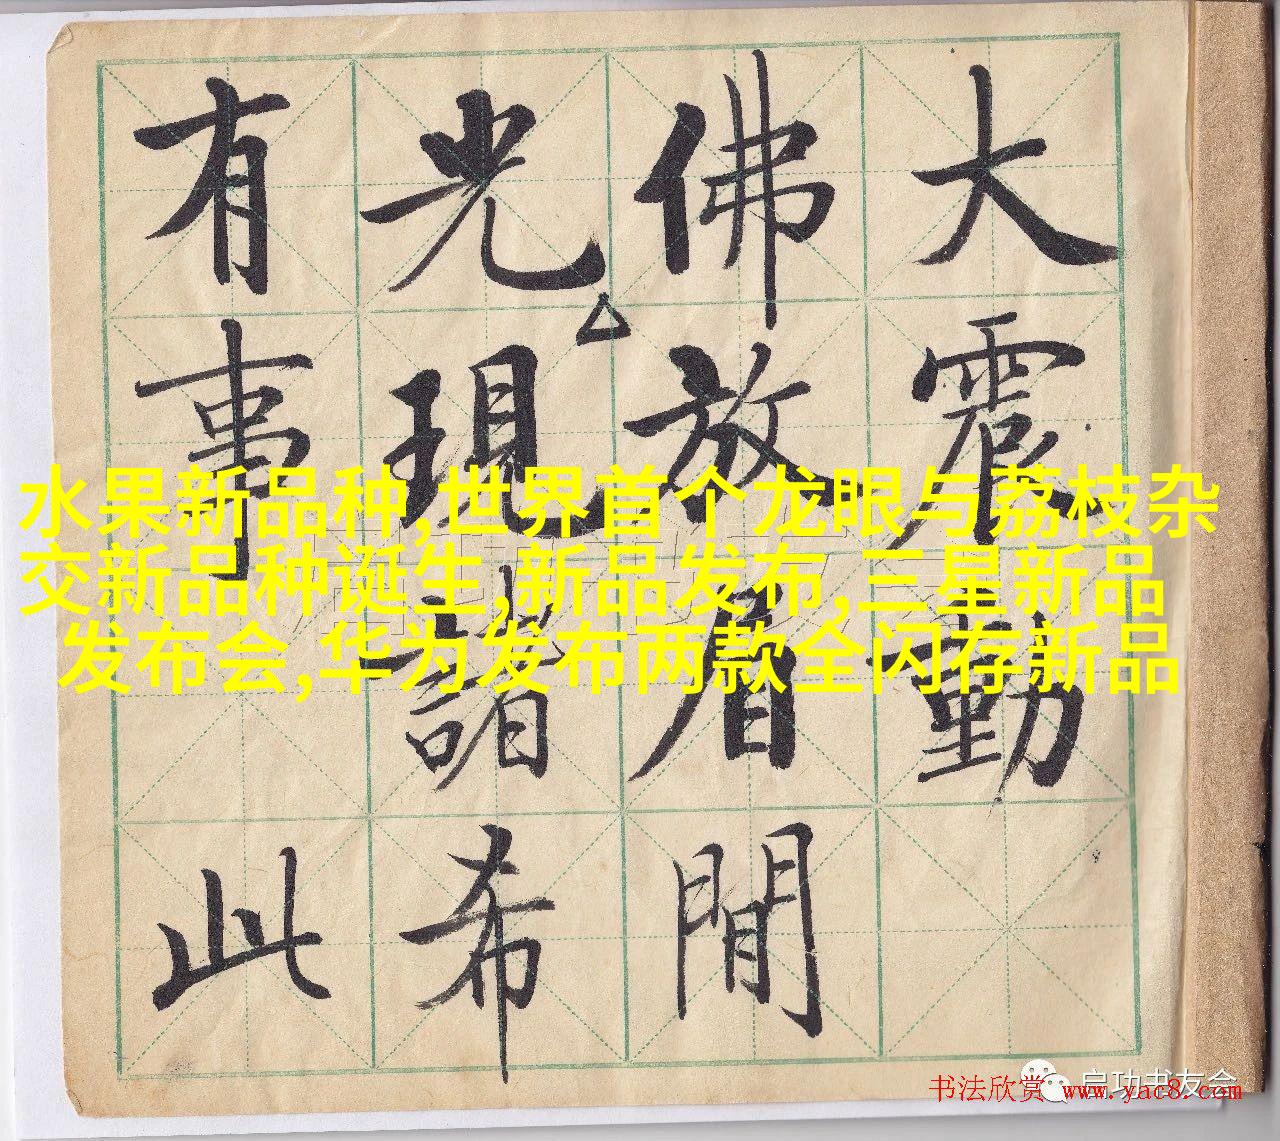 大震動
佛放眉間
光現諸希
有事此
水果新品种,世界首个龙眼与荔枝杂
交新品种诞生,新品发布,三星新品
发布会,华为发布两款全闪存新品
启功书友会
书法欣赏 www.yac8.com